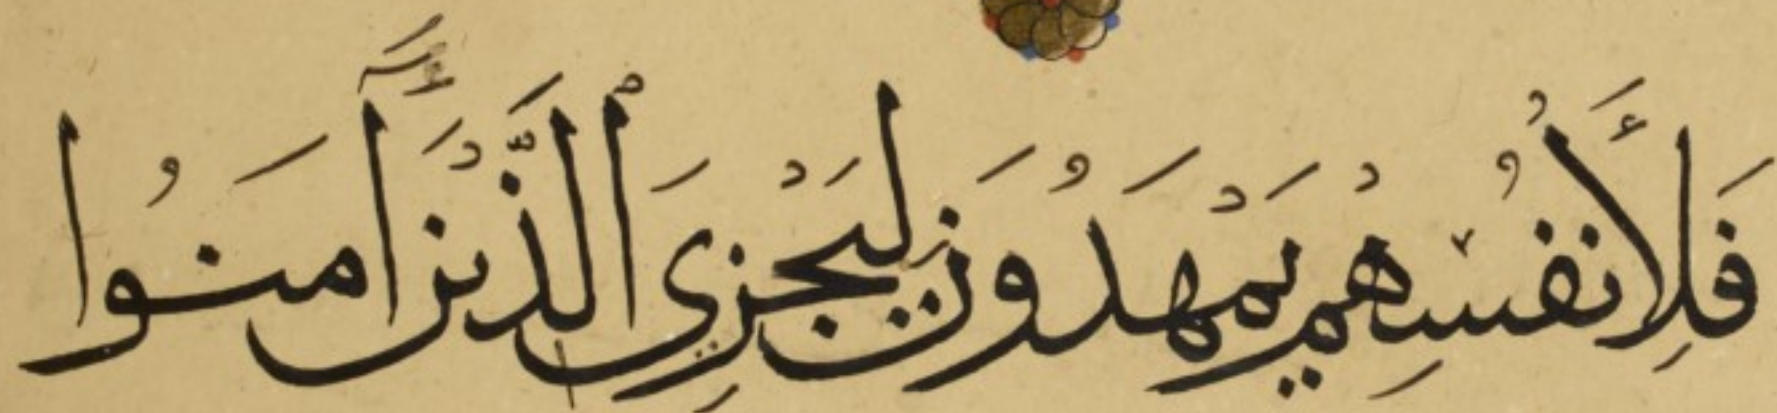 فَلِأَنفُسِهِمْ يَمْهَدُونَ لِيَجْزِيَ ٱلَّذِينَ آمَنُوا